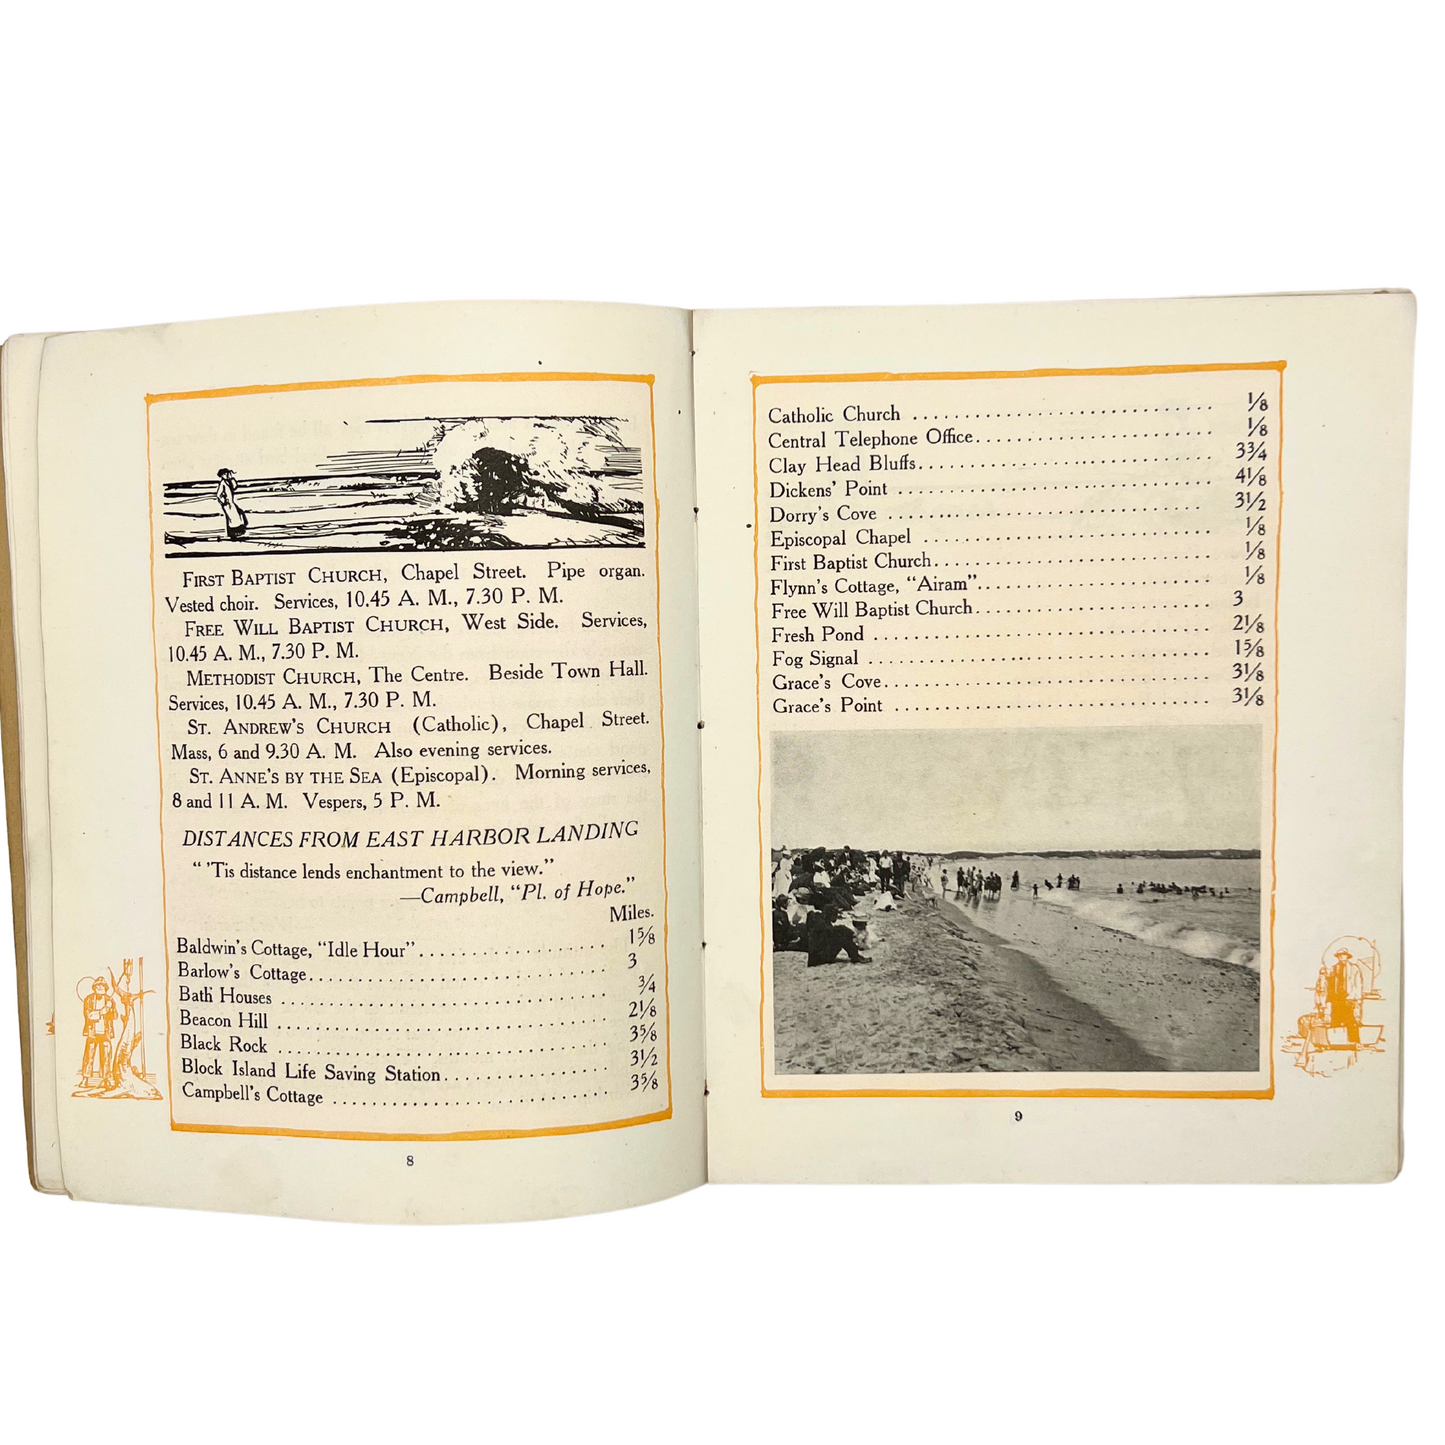 FIRST BAPTIST CHURCH, Chapel Street. Pipe organ.
Vested choir. Services, 10.45 A. M., 7.30 P. M.
FREE WILL BAPTIST CHURCH, West Side. Services,
10.45 A. M., 7.30 P. M.
METHODIST CHURCH, The Centre. Beside Town Hall.
Services, 10.45 A. M., 7.30 P. M.
ST. ANDREW'S CHURCH (Catholic), Chapel Street.
Mass, 6 and 9.30 A. M. Also evening services.
ST. ANNE'S BY THE SEA (Episcopal). Morning services,
8 and 11 A. M. Vespers, 5 P. M.
DISTANCES FROM EAST HARBOR LANDING
" 'Tis distance lends enchantment to the view."
—Campbell, "Pl. of Hope."
Miles.
Baldwin's Cottage, "Idle Hour" . . . . . . . . . . . . . . . 1⅝
Barlow's Cottage . . . . . . . . . . . . . . . 3
Bath Houses . . . . . . . . . . . . . . . ¾
Beacon Hill . . . . . . . . . . . . . . . 2⅛
Black Rock . . . . . . . . . . . . . . . 3⅝
Block Island Life Saving Station . . . . . . . . . . . . . . . 3½
Campbell's Cottage . . . . . . . . . . . . . . . 3⅝
8
Catholic Church . . . . . . . . . . . . . . . ⅛
Central Telephone Office . . . . . . . . . . . . . . . ⅛
Clay Head Bluffs . . . . . . . . . . . . . . . 3¾
Dickens' Point . . . . . . . . . . . . . . . 4⅛
Dorry's Cove . . . . . . . . . . . . . . . 3½
Episcopal Chapel . . . . . . . . . . . . . . . ⅛
First Baptist Church . . . . . . . . . . . . . . . ⅛
Flynn's Cottage, "Airam" . . . . . . . . . . . . . . . ⅛
Free Will Baptist Church . . . . . . . . . . . . . . . 3
Fresh Pond . . . . . . . . . . . . . . . 2⅛
Fog Signal . . . . . . . . . . . . . . . 1⅝
Grace's Cove . . . . . . . . . . . . . . . 3⅛
Grace's Point . . . . . . . . . . . . . . . 3⅛
9